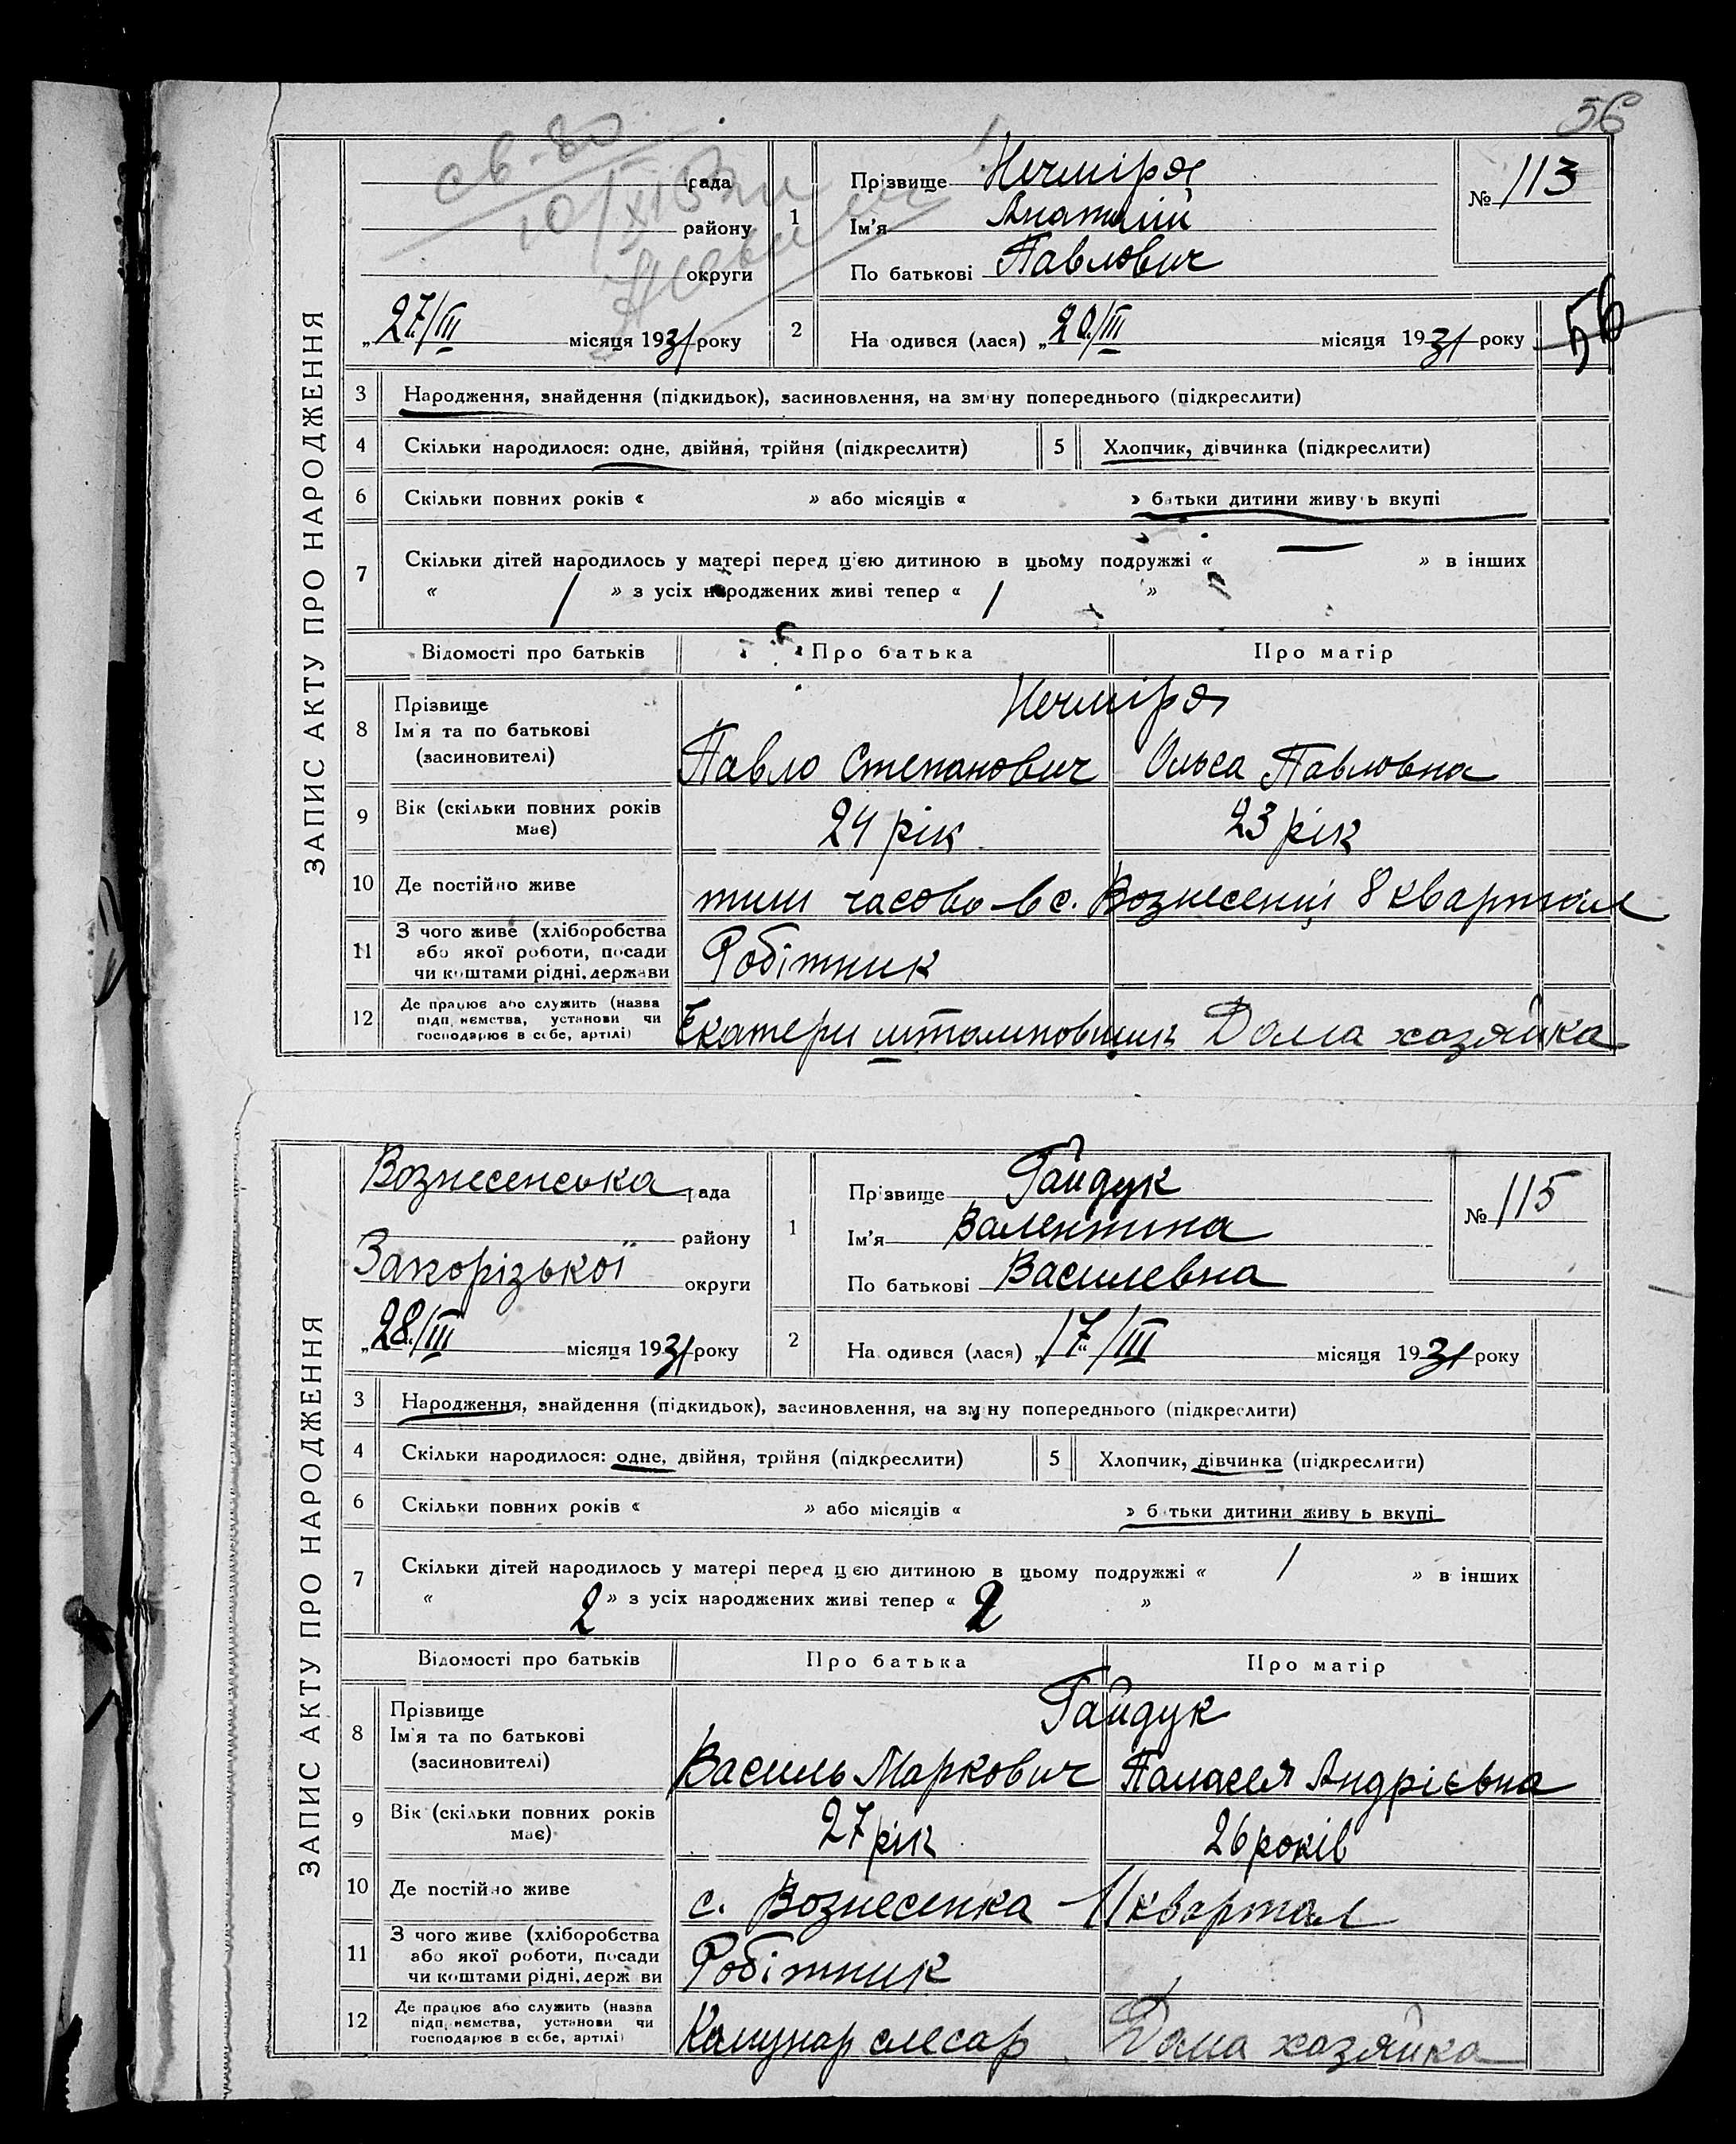 56
ЗАПИС АКТУ ПРО НАРОДЖЕННЯ
св-во
рада
району
округи
„27/III місяця 1931 року
1
Прізвище Нечміря
Ім'я Анатолій
По батькові Павлович
№ 113
2
На одився (лася) „20/III місяця 1931 року
56
3 Народження, знайдення (підкидьок), засиновлення, на зм ну попереднього (підкреслити)
4 Скільки народилося: одне, двійня, трійня (підкреслити) 5 Хлопчик, дівчинка (підкреслити)
6 Скільки повних років « » або місяців « » батьки дитини живу ь вкупі
7 Скільки дітей народилось у матері перед цією дитиною в цьому подружжі « — » в інших
« 1 » з усіх народжених живі тепер « 1 »
Відомості про батьків Про батька Про матір
8 Прізвище
Ім'я та по батькові
(засиновителі)
Нечміря
Павло Степанович Ольга Павловна
9 Вік (скільки повних років
має)
24 рік 23 рік
10 Де постійно живе
тим часово в с. Вознесенці 8 квартал
11 З чого живе (хліборобства
або якої роботи, посади
чи коштами рідні, держави
Робітник
12 Де працює або служить (назва
підп иємства, установи чи
господарює в себе, артілі)
Екатери штамповщик Дома хозяйка
ЗАПИС АКТУ ПРО НАРОДЖЕННЯ
Вознесенська рада
району
Запорізької округи
„28/III місяця 1931 року
1
Прізвище Гайдук
Ім'я Валентина
По батькові Василевна
№ 115
2
На одився (лася) „17/III місяця 1931 року
3 Народження, знайдення (підкидьок), засиновлення, на зм ну попереднього (підкреслити)
4 Скільки народилося: одне, двійня, трійня (підкреслити) 5 Хлопчик, дівчинка (підкреслити)
6 Скільки повних років « » або місяців « » б тьки дитини живу ь вкупі
7 Скільки дітей народилось у матері перед ц єю дитиною в цьому подружжі « 1 » в інших
« 2 » з усіх народжених живі тепер « 2 »
Відомості про батьків Про батька Про матір
8 Прізвище
Ім'я та по батькові
(засиновителі)
Гайдук
Василь Маркович Паласея Андрієвна
9 Вік (скільки повних років
має)
27 рік 26 років
10 Де постійно живе
с. Вознесенка - 11 квартал
11 З чого живе (хліборобства
або якої роботи, посади
чи коштами рідні, держ ви
Робітник
12 Де працює або служить (назва
підп иємства, установи чи
господарює в себе, артілі)
Комунар слесар Дома хозяйка